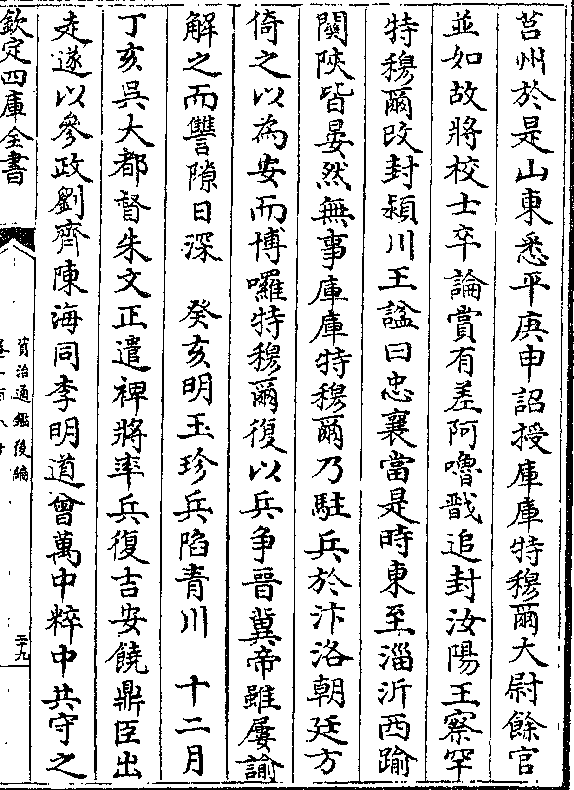 莒州於是山東悉平庚申詔授庫庫特穆爾大尉餘官
並如故將校士卒論賞有差阿嚕戩追封汝陽王察罕
特穆爾改封潁川王諡曰忠襄當是時東至淄沂西踰
關陜皆晏然無事庫庫特穆爾乃駐兵於汴洛朝廷方
倚之以為安而博囉特穆爾復以兵争晉冀帝雖屢諭
解之而讐隙日深　癸亥明玉珍兵陷青川　十二月
丁亥吳大都督朱文正遣裨將率兵復吉安饒鼎臣出
走遂以參政劉齊陳海同李明道曾萬中粹中共守之
欽定四庫全書
資治通鑑後編
三十九